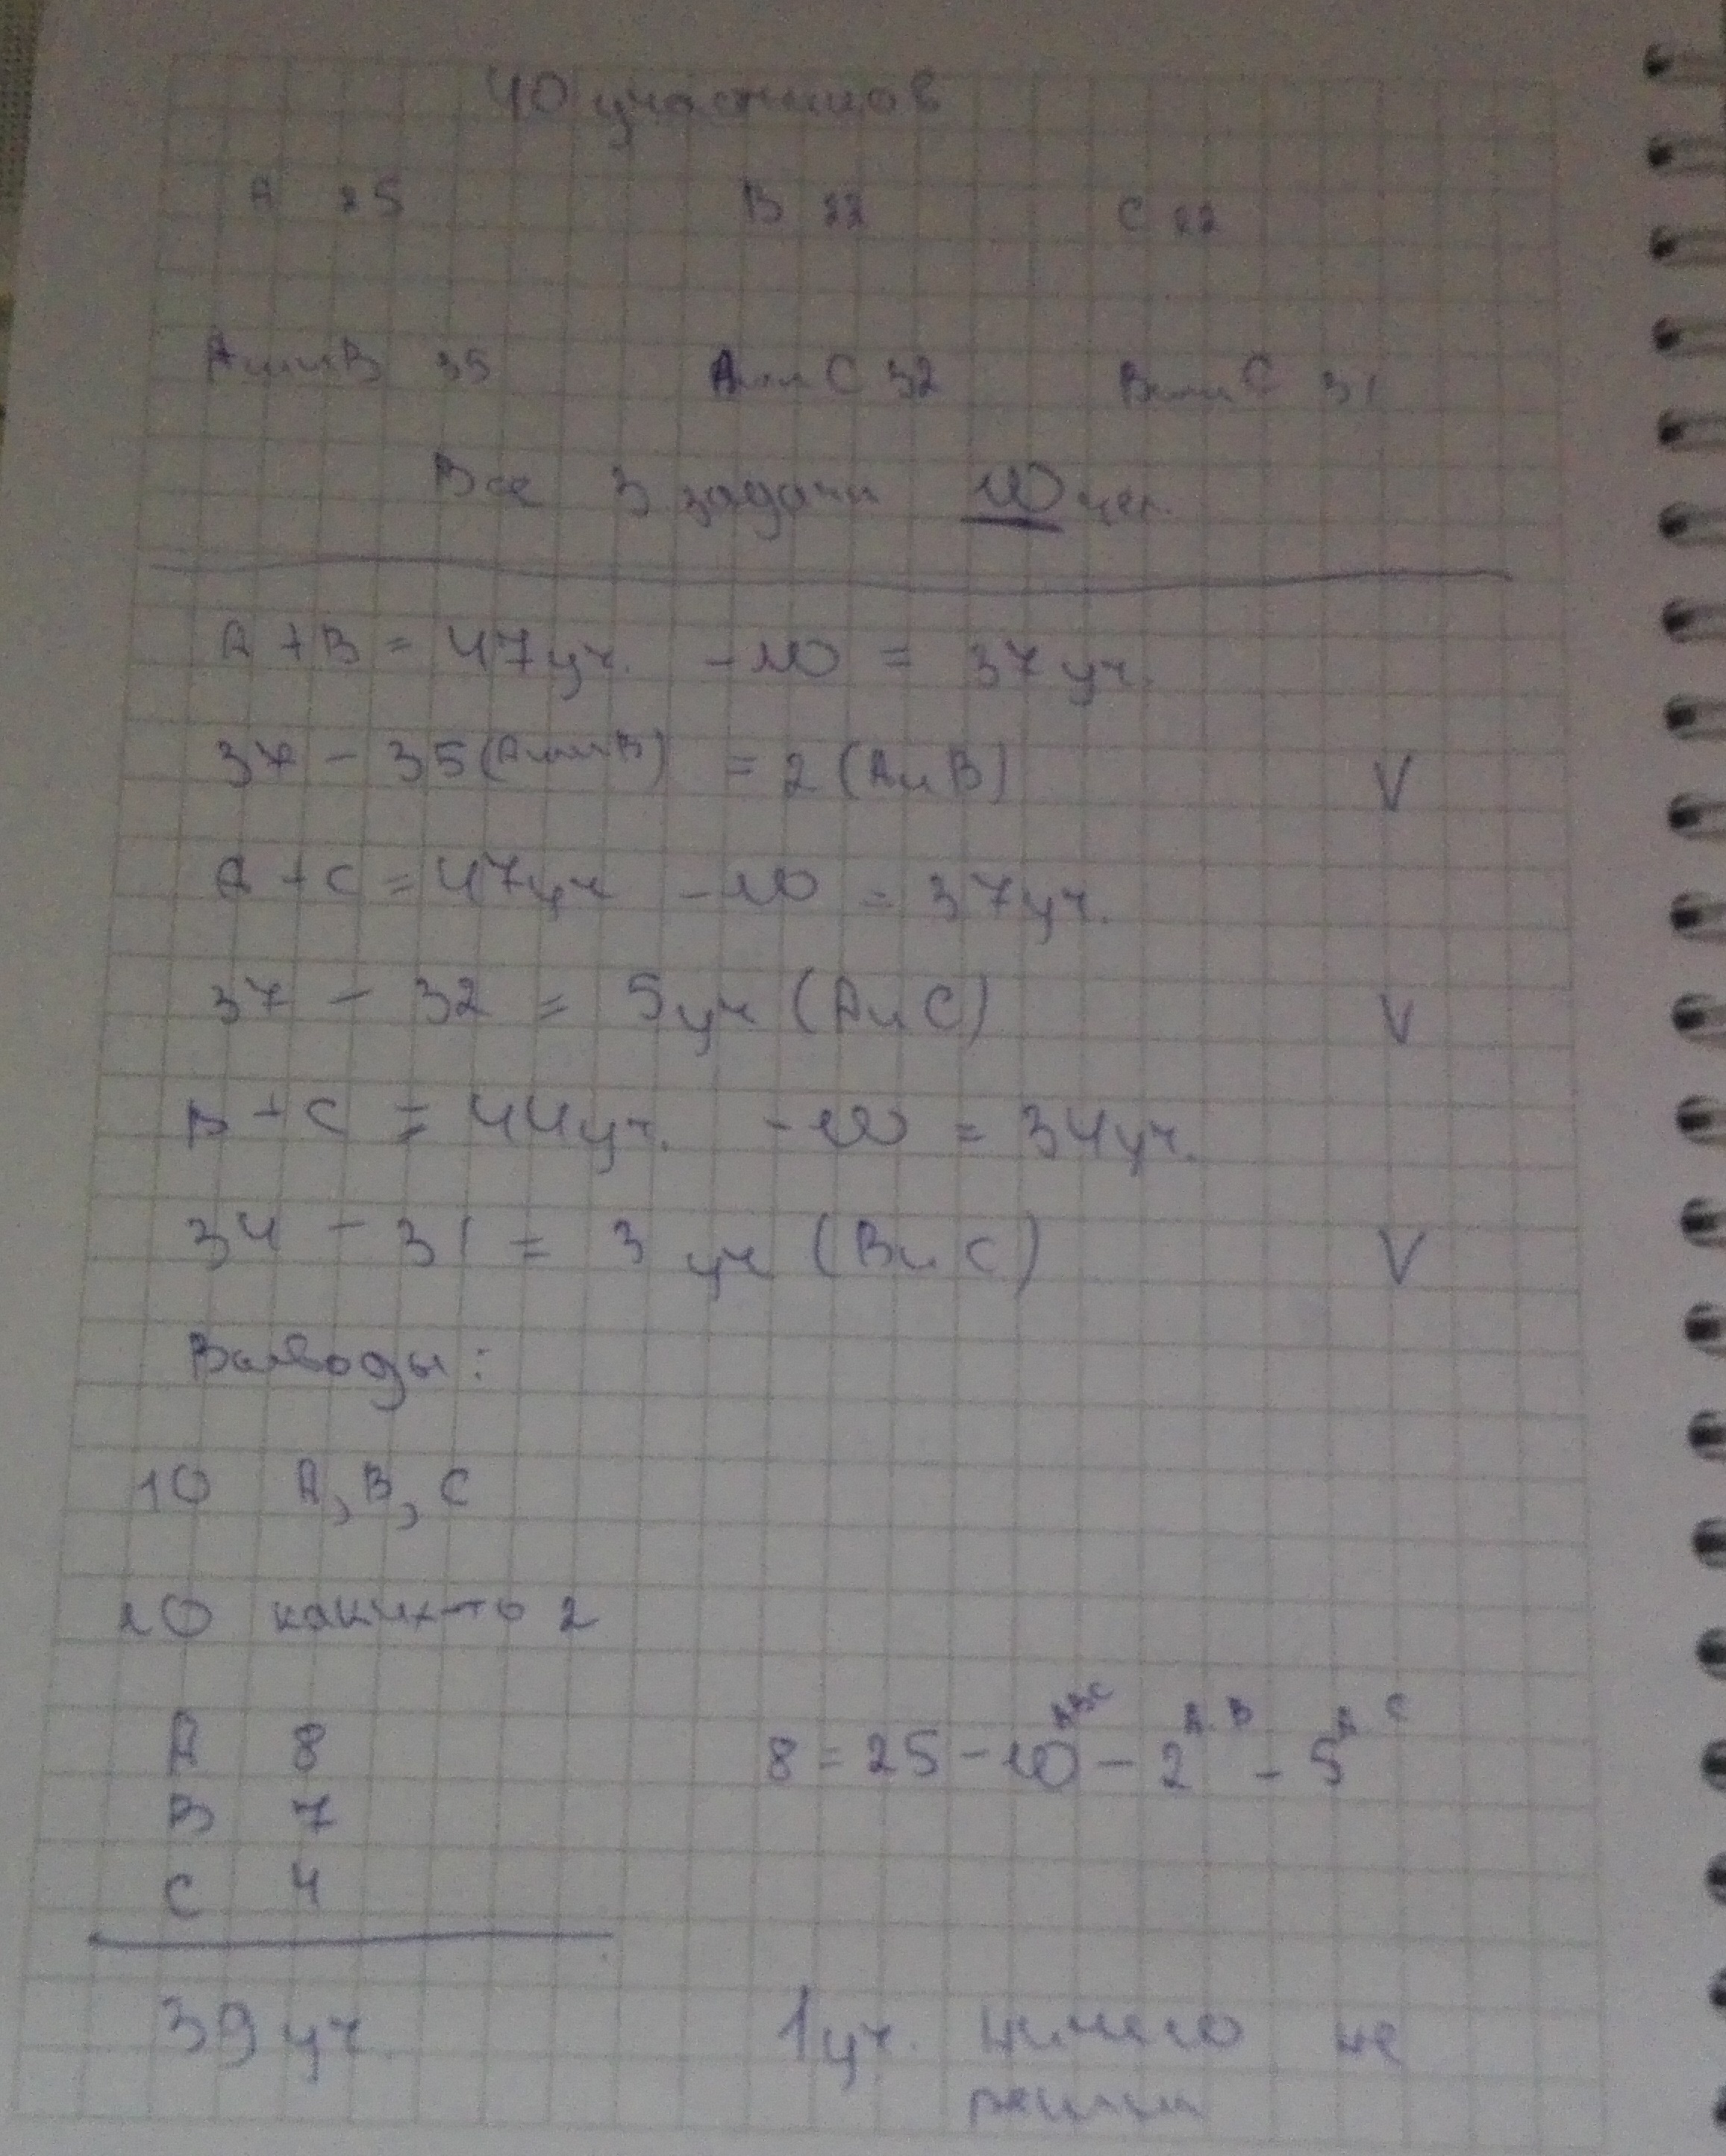 40 участников
А 25 В 22 С 22
А или В 35 А или С 32 В или С 31
Все 3 задачи 10 чел.
А + В = 47 уч. - 10 = 37 уч.
37 - 35 (А или В) = 2 (А и В) V
А + С = 47 уч - 10 = 37 уч.
37 - 32 = 5 уч (А и С) V
В + С = 44 уч. - 10 = 34 уч.
34 - 31 = 3 уч (В и С) V
Выводы:
10 А, В, С
10 каких-то 2
А 8 8 = 25 - 10 АВС - 2 А В - 5 А С
В 7
С 4
39 уч 1 уч. ничего не
решил